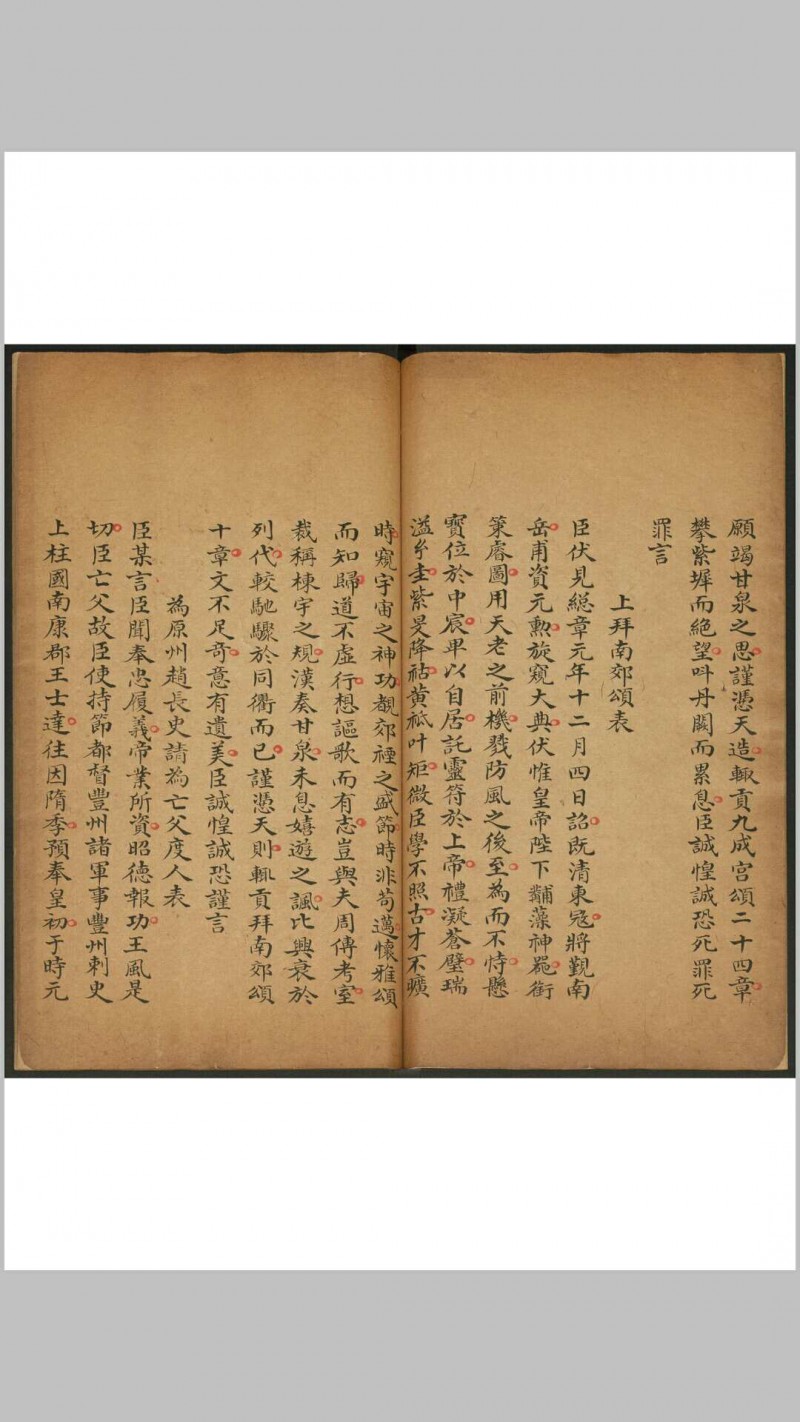 願竭甘泉之思謹憑天造輒貢九成宮頌二十四章
攀紫墀而絕望叫丹闕而累息臣誠惶誠恐死罪死
罪言
上拜南郊頌表
臣伏見緫章元年十二月四日詔既清東冦將覲南
岳甫資元勲旋窺大典伏惟皇帝陛下黼藻神器銜
策睿圖用天老之前機戮防風之後至為而不恃懸
寶位於中宸卑以自居託靈符於上帝禮凝蒼璧瑞
溢圭紫旻降祜黄祇叶矩微臣學不照古才不曠
時窺宇宙之神功覩郊禋之盛節時非苟邁懷雅頌
而知歸道不虛行想謳歌而有志豈與夫周傅考室
裁稱棟宇之規漢奏甘泉未息嬉遊之諷比興衰於
列代較馳驟於同衢而已謹憑天則輒貢拜南郊頌
十章文不足竒意有遺美臣誠惶誠恐謹言
為原州趙長史請為亡父度人表
臣某言臣聞奉忠履義帝業所資昭德報功王風是
切臣亡父故臣使持節都督豐州諸軍事豐州刺史
上柱國南康郡王士達往因隋季預奉皇初于時元